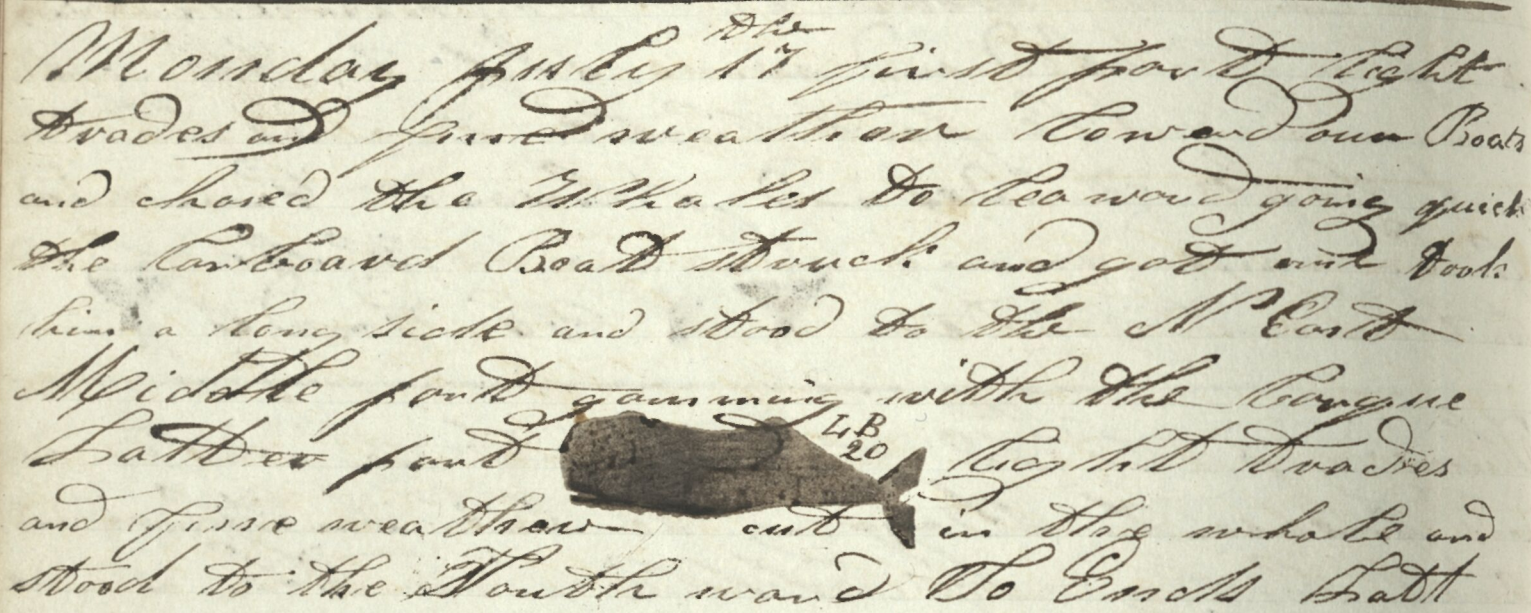 Monday July 17 the first part light
trades and fine weather lowerd our Boats
and chased the Whales to leaward going quick
the Larboard Boat struck and got one took
him a long side and stood to the N East
Middle part gamming with the
Latter part light trades
LB
20
and fine weather cut in the whale and
stood to the South ward So Ends Latt